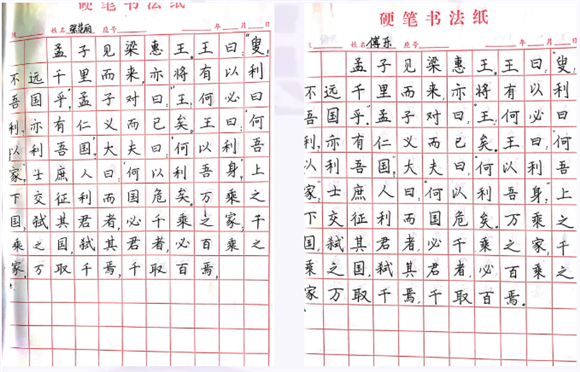 硬笔书法纸
姓名 座号 年 月 日
孟子见梁惠王。王曰：“叟，
不远千里而来，亦将有以利
吾国乎”孟子对曰：“王，何必曰
利，亦有仁义而已矣。王曰：“何
以利吾国”大夫曰：“何以利吾
家”士庶人曰：“何以利吾身，”上
下交征利而国危矣。万乘之
国，弑其君者，必千乘之家，千
乘之国，弑其君者，必百乘之
家，万取千焉，千取百焉，
硬笔书法纸
姓名 座号 年 月 日
孟子见梁惠王。王曰：“叟，
不远千里而来，亦将有以利
吾国乎。”孟子对曰：“王，何必曰
利，亦有仁义而已矣。王曰：“何
以利吾国”大夫曰：“何以利吾
家”士庶人曰：“何以利吾身，”上
下交征利而国危矣。万乘之
国，弑其君者，必千乘之家，千
乘之国，弑其君者，必百乘之
家万取千焉，千取百焉。